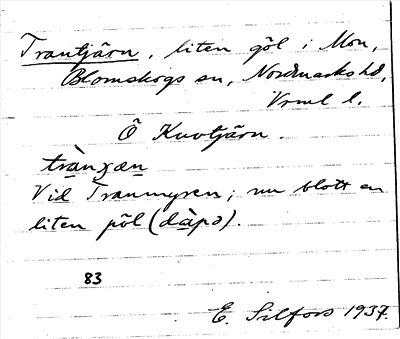 Trantjärn, liten göl i Mon,
Blomskogs sn, Nordmarks hd,
Vrml l.
Ö Kuvtjärn.
trànχæn
Vid Tranmyren; nu blott en
liten pöl (dàpə).
83
E. Silfors 1937.